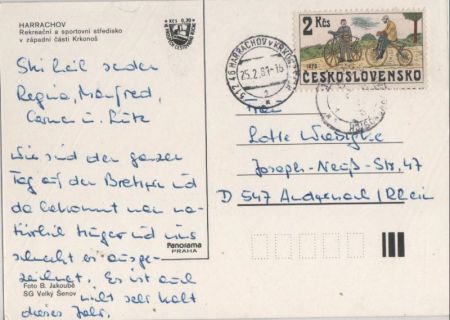 HARRACHOV
Rekreační a sportovní středisko
v západní části Krkonoš
Kčs 0,30
Ski heil senden
Regina, Manfred,
Carmen u. Lutz
Wir sind den ganzen
Tag auf den Brettern und
da bekommt man na-
türlich Hunger und uns
schmeckt es ausge-
zeichnet. Es ist auch
nicht sehr kalt
dieses Jahr.
Foto B. Jakoubě
SG Velký Šenov
Panorama
PRAHA
512 46 HARRACHOV V KRKONOŠÍCH
25.2.81-15
2 Kčs
1870
ČESKOSLOVENSKO
Lotte
Joseph-Neuß-Str. 47
D 547 Andernach/Rhein